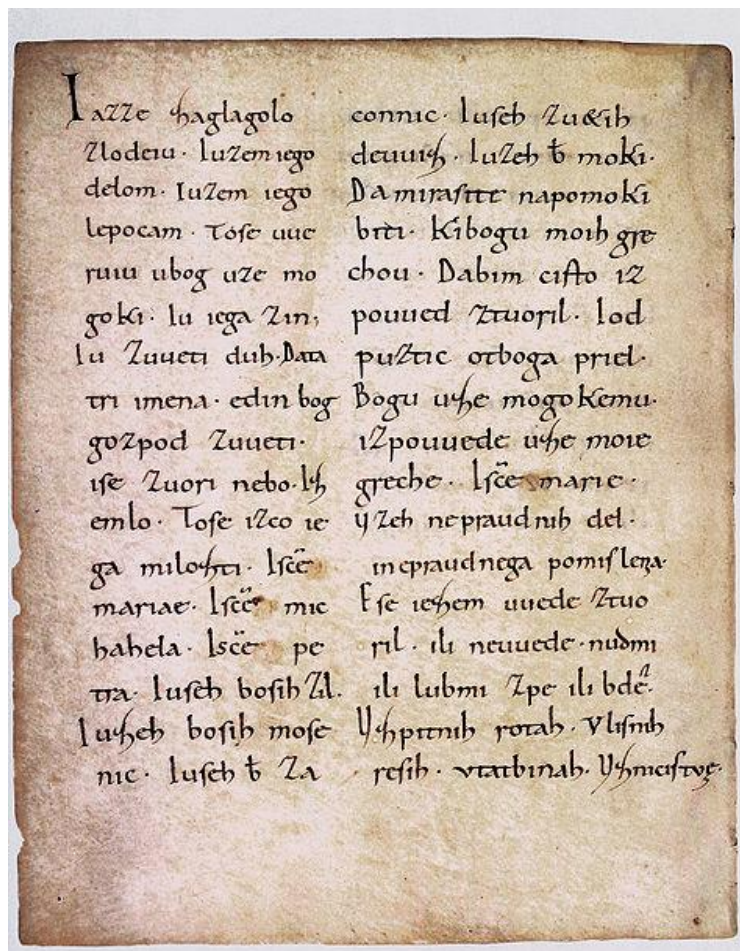 Iazze zaglagolo
zlodeiu. Iuzem iego
delom. Iuzem iego
lepocam. Tose uue
ruiu ubog uze mo
goki. Iu iega zin,
Iu zuueti duh. Data
tri imena. edin bog
gozpod zuueti.
ise zuori nebo. Iz
emlo. Tose izco ie
ga milozti. Isc͞e
mariae. Isc͞e mic
hahela. Isc͞e pe
tra. Iuseh bosih zil.
Iuzeh bosih mose
nic. Iuseh b̄ za
connic. Iuseh zu&ih
deuuiz. Iuzeh b̄ moki.
Da mirasite napomoki
bt̄ei. Kibogu moih gre
chou. Dabim cisto iz
pouued ztuoril. Iod
puztic otboga priel.
Bogu uze mogokemu.
izpouuede uze moie
greche. Isc͞e marie.
uzeh nepraudnih del.
inepraudnega pomislena.
Ese iezem uuede ztuo
ril. ili neuuede. nudmi
ili lubmi zpe ili bde͞.
Uzpitnih rotah. Vlisnih
resih. vtatbinah. Uznicistve.